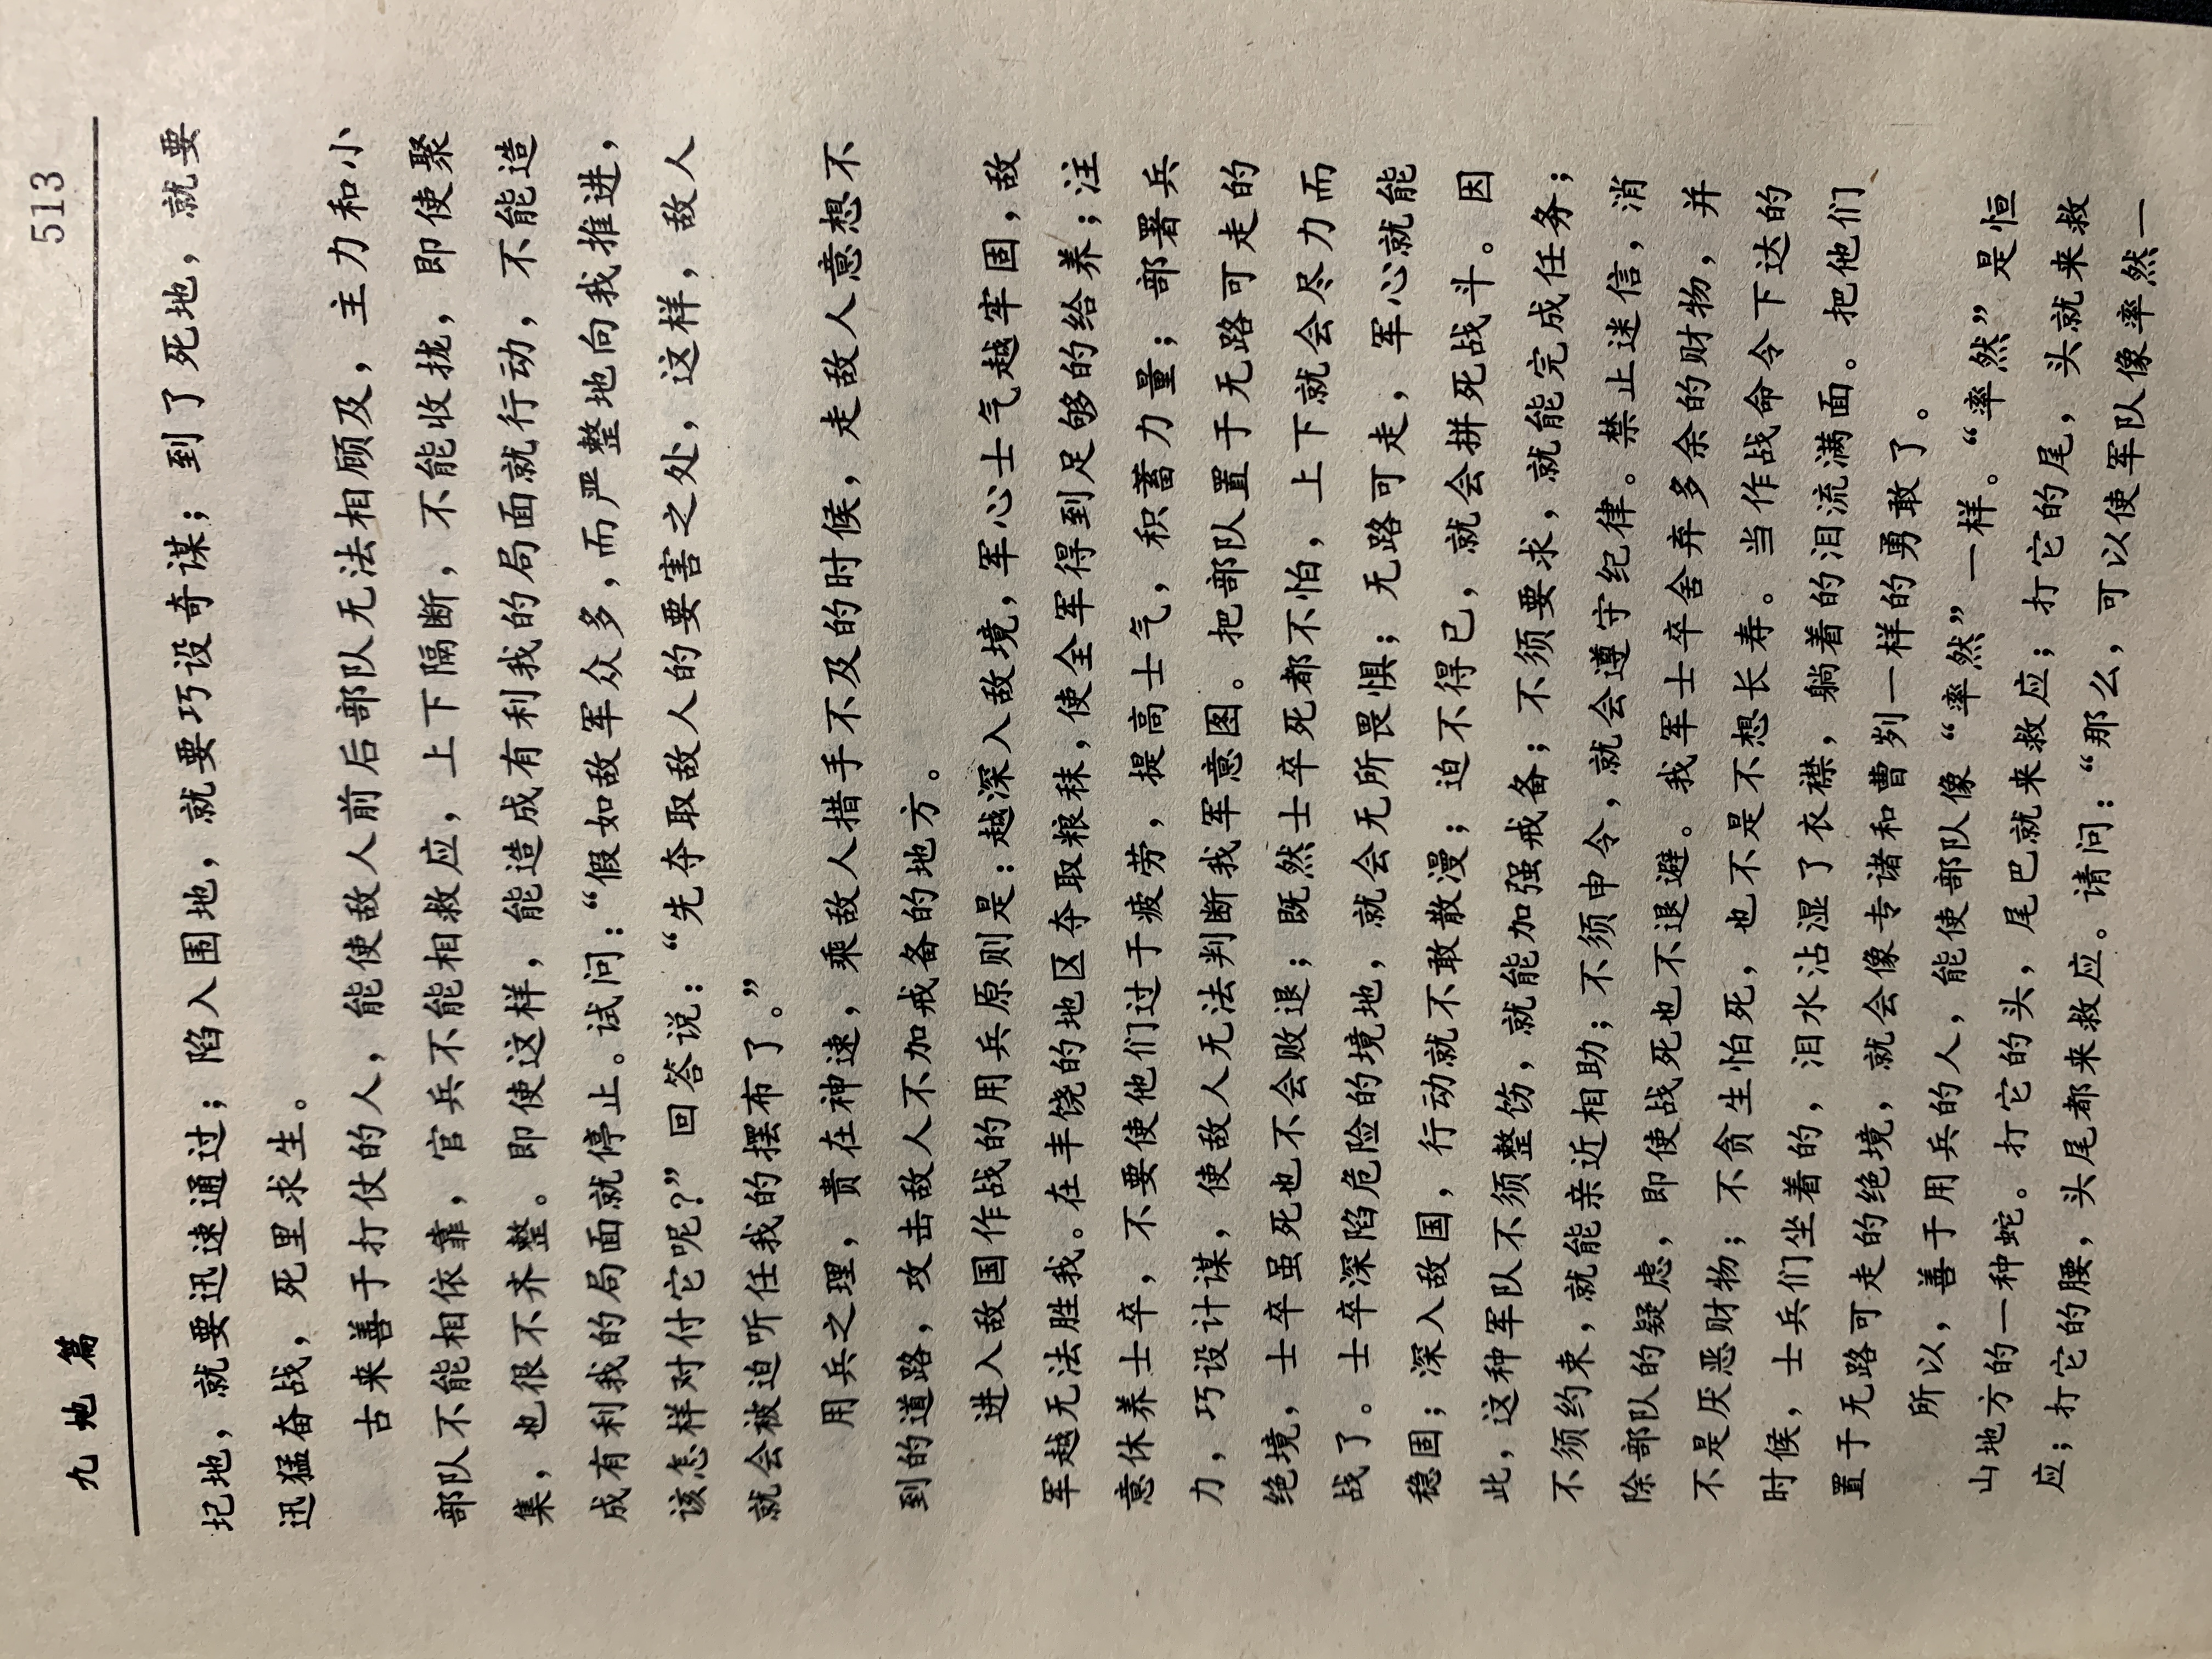 九地篇 513
圮地，就要迅速通过；陷入围地，就要巧设奇谋；到了死地，就要
迅猛奋战，死里求生。
古来善于打仗的人，能使敌人前后部队无法相顾及，主力和小
部队不能相依靠，官兵不能相救应，上下隔断，不能收拢，即使聚
集，也很不齐整。即使这样，能造成有利我的局面就行动，不能造
成有利我的局面就停止。试问：“假如敌军众多，而严整地向我推进，
该怎样对付它呢？”回答说：“先夺取敌人的要害之处，这样，敌人
就会被迫听任我的摆布了。”
用兵之理，贵在神速，乘敌人措手不及的时候，走敌人意想不
到的道路，攻击敌人不加戒备的地方。
进入敌国作战的用兵原则是：越深入敌境，军心士气越牢固，敌
军越无法胜我。在丰饶的地区夺取粮秣，使全军得到足够的给养；注
意休养士卒，不要使他们过于疲劳，提高士气，积蓄力量；部署兵
力，巧设计谋，使敌人无法判断我军意图。把部队置于无路可走的
绝境，士卒虽死也不会败退；既然士卒死都不怕，上下就会尽力而
战了。士卒深陷危险的境地，就会无所畏惧；无路可走，军心就能
稳固；深入敌国，行动就不敢散漫；迫不得已，就会拼死战斗。因
此，这种军队不须整饬，就能加强戒备；不须要求，就能完成任务；
不须约束，就能亲近相助；不须申令，就会遵守纪律。禁止迷信，消
除部队的疑虑，即使战死也不退避。我军士卒舍弃多余的财物，并
不是厌恶财物；不贪生怕死，也不是不想长寿。当作战命令下达的
时候，士兵们坐着的，泪水沾湿了衣襟，躺着的泪流满面。把他们
置于无路可走的绝境，就会像专诸和曹刿一样的勇敢了。
所以，善于用兵的人，能使部队像“率然”一样。“率然”是恒
山地方的一种蛇。打它的头，尾巴就来救应；打它的尾，头就来救
应；打它的腰，头尾都来救应。请问：“那么，可以使军队像率然一